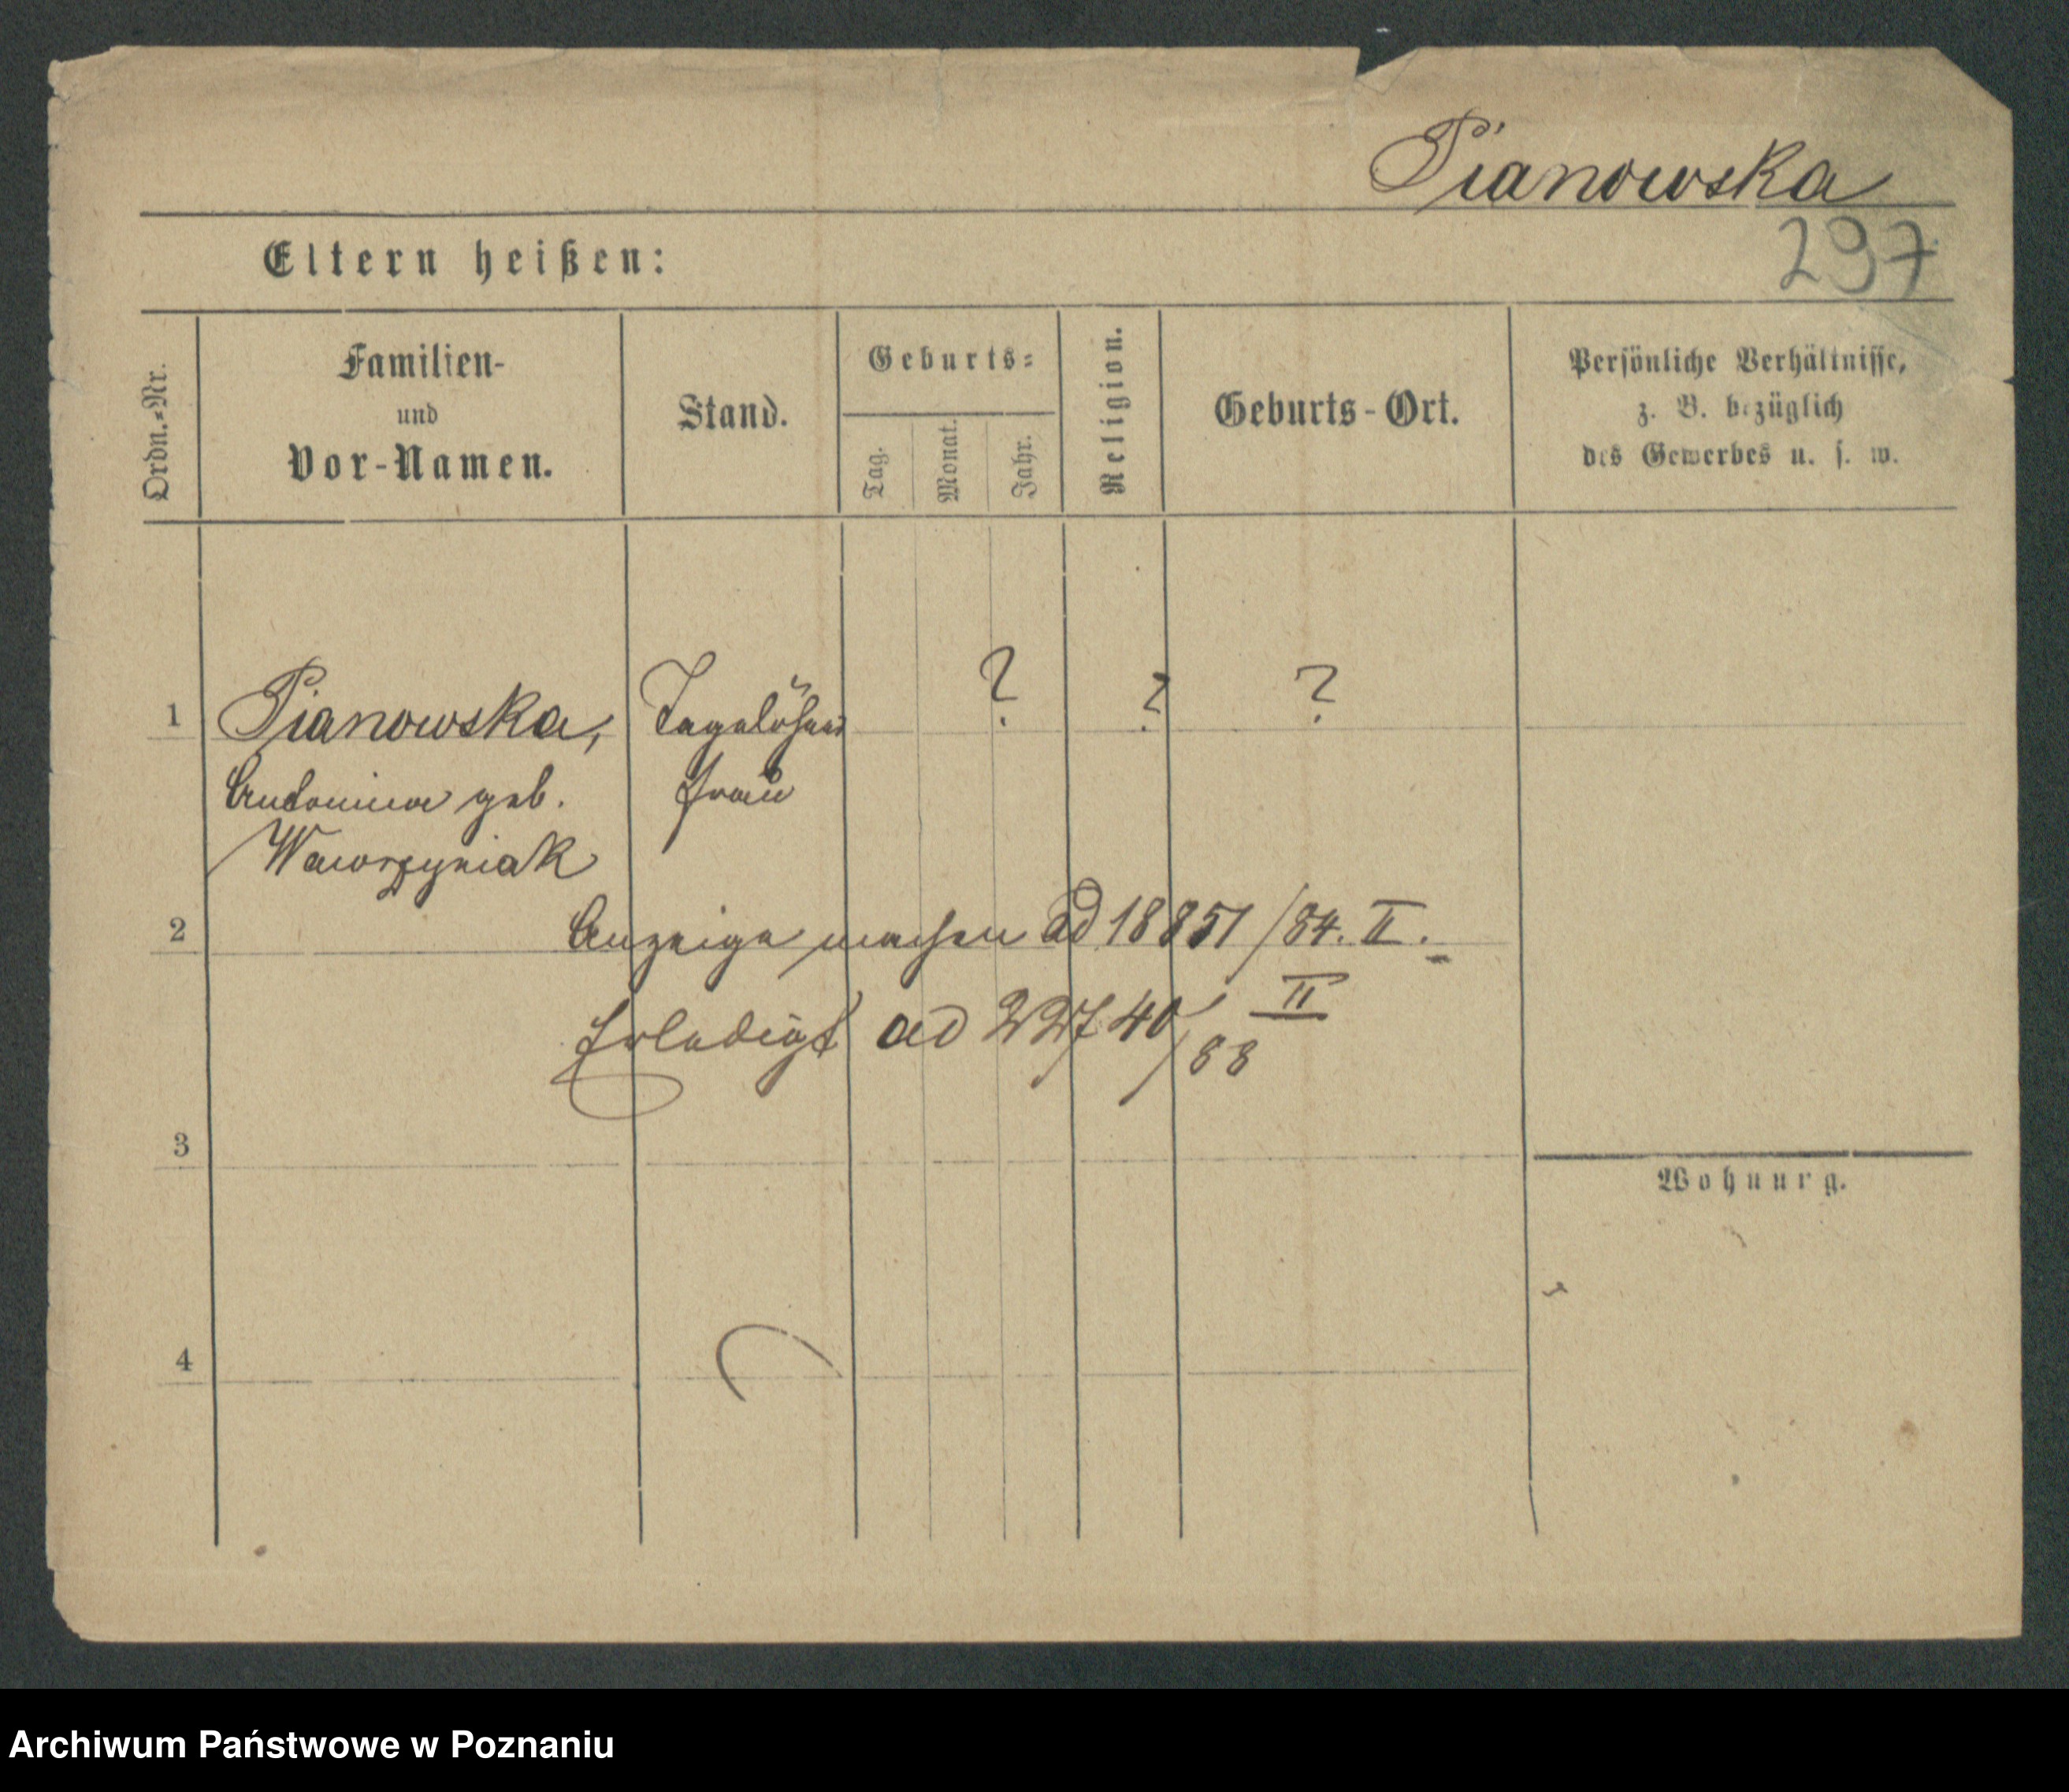 Pianowska
297
Eltern heißen:
Ordn.=Nr.
Familien-
und
Vor-Namen.
Stand.
Geburts=
Tag.
Monat.
Jahr.
Religion.
Geburts-Ort.
Persönliche Verhältnisse,
z. B. bezüglich
des Gewerbes u. s. w.
1 Pianowska, Tagelöhner ? ? ?
Antonina geb. frau
Wawrzyniak
2 Anzeige machen ad 18851/84. II.
Erledigt ad 22740/88 II
3
Wohnung.
4
Archiwum Państwowe w Poznaniu